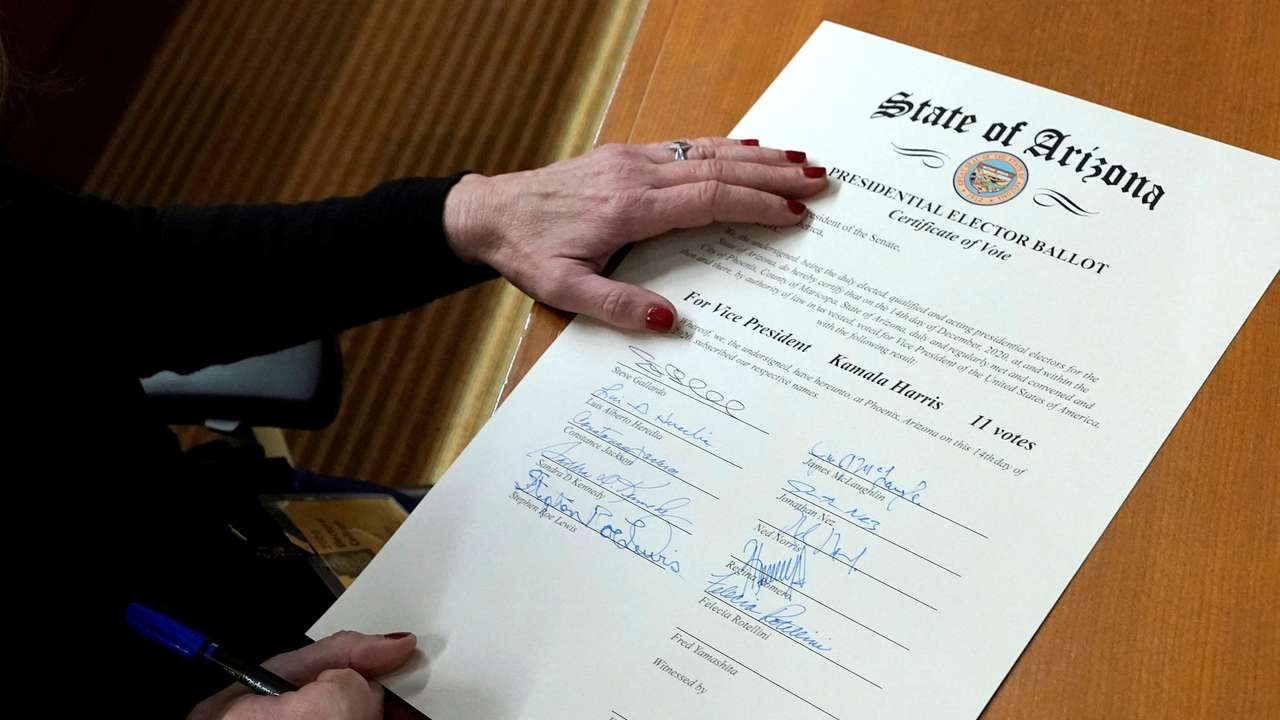 State of Arizona
PRESIDENTIAL ELECTOR BALLOT
Certificate of Vote
President of the Senate,
America,
We, the undersigned, being the duly elected, qualified and acting presidential electors for the
State of Arizona, do hereby certify that on the 14th day of December, 2020, at and within the
City of Phoenix, County of Maricopa, State of Arizona, duly and regularly met and convened and
then and there, by authority of law in us vested, voted for Vice President of the United States of America,
with the following result:
For Vice President Kamala Harris 11 votes
Whereof, we, the undersigned, have hereunto, at Phoenix, Arizona on this 14th day of
2020, subscribed our respective names.
Steve Gallardo
Luis Alberto Heredia
Constance Jackson
Sandra D Kennedy
Stephen Roe Lewis
Stephen Roe Lewis
James McLaughlin
Jonathan Nez
Ned Norris
Regina Romero
Felecia Rotellini
Felecia Rottellini
Fred Yamashita
Witnessed by